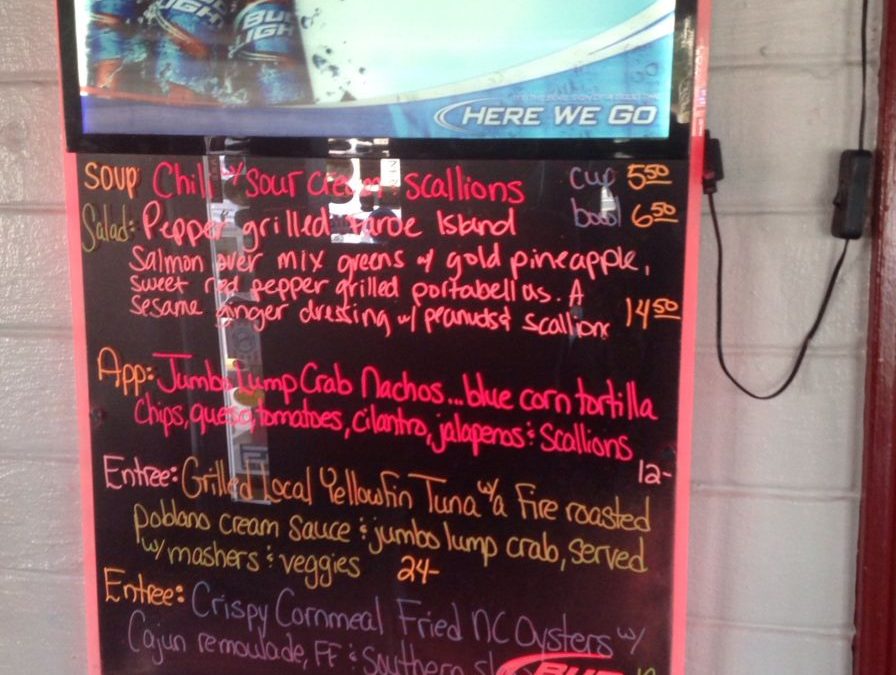 BUD LIGHT
BUD LIGHT
HERE WE GO
Soup Chili w/ sour cream scallions cup 5.50
bowl 6.50
Salad: Pepper grilled Faroe Island
Salmon over mix greens w/ gold pineapple,
sweet red pepper grilled portabellas. A
Sesame ginger dressing w/ peanuts & scallion 14.50
App: Jumbo Lump Crab Nachos... blue corn tortilla
Chips, queso, tomatoes, cilantro, jalapenos & Scallions
12-
Entree: Grilled Local Yellowfin Tuna w/a Fire roasted
poblano cream sauce & jumbo lump crab, served
w/ mashers & veggies 24-
Entree: Crispy Cornmeal Fried NC Oysters w/
Cajun remoulade, FF & Southern
BUD